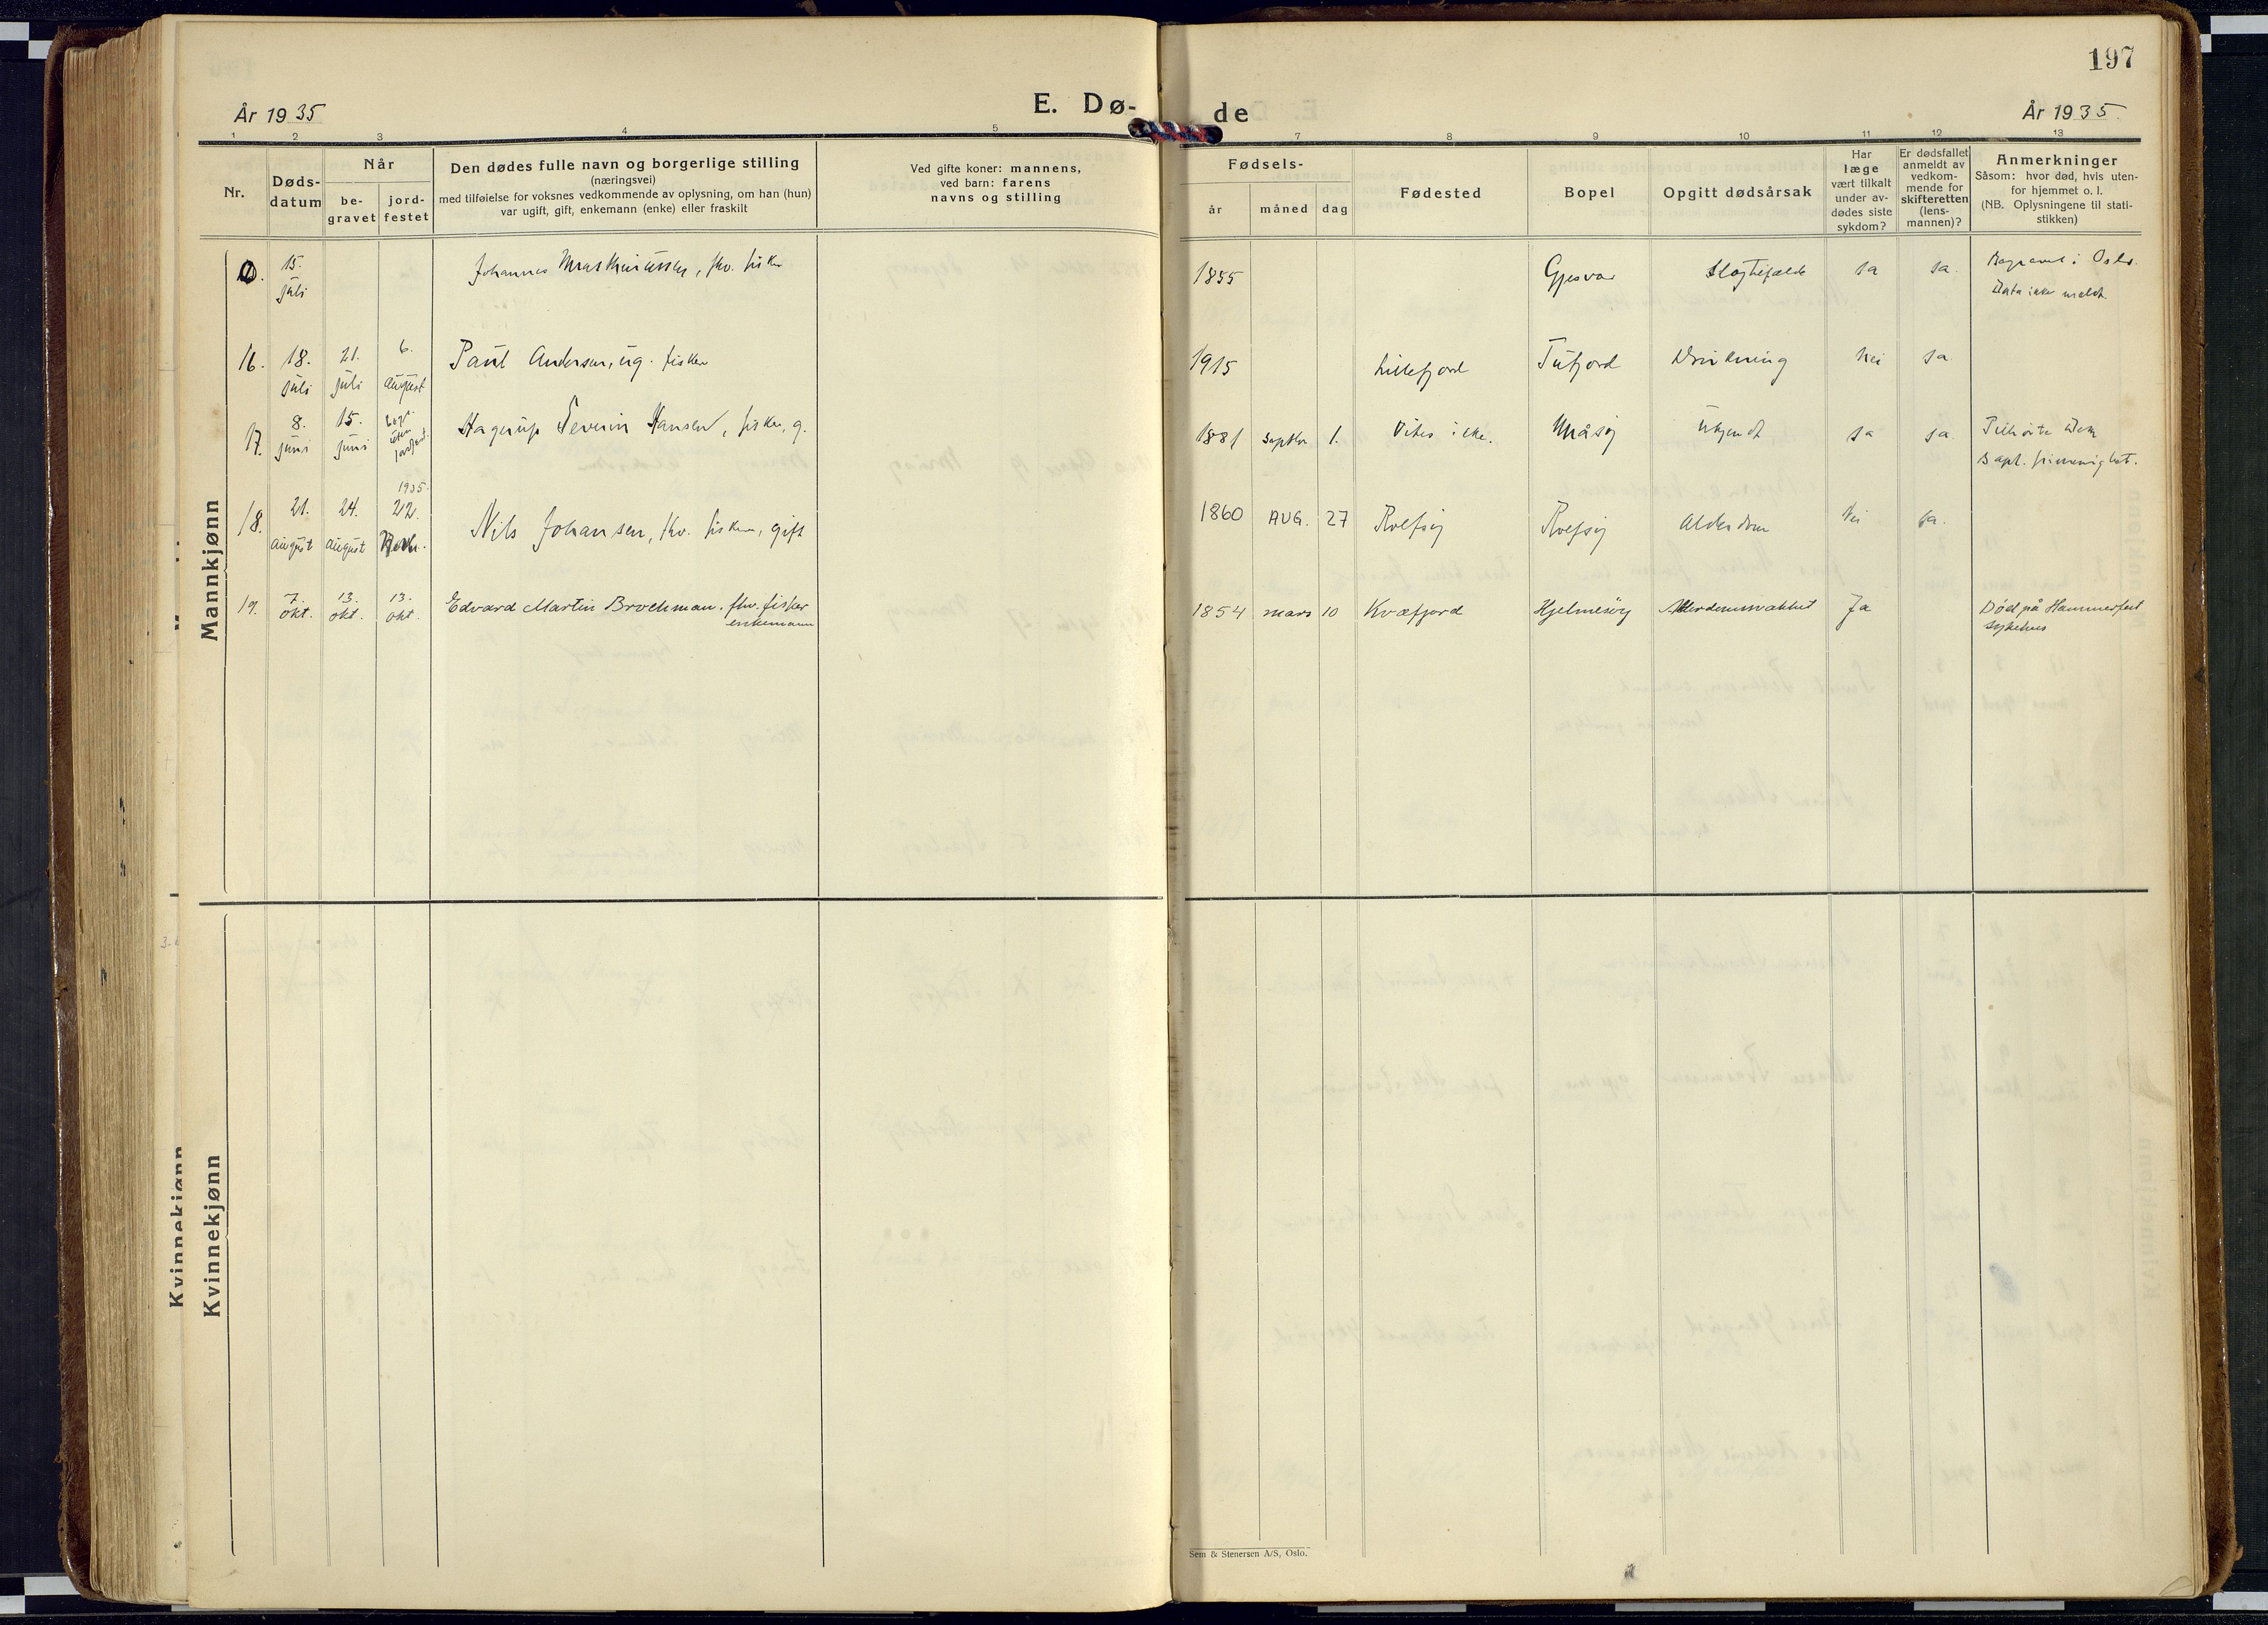 197
År 1935
E. Dø-
de
År 1935.
1 2 3 4 5 7 8 9 10 11 12 13
Nr.
Døds-
datum
Når
be-
gravet
jord-
festet
Den dødes fulle navn og borgerlige stilling
(næringsvei)
med tilføielse for voksnes vedkommende av oplysning, om han (hun)
var ugift, gift, enkemann (enke) eller fraskilt
Ved gifte koner: mannens,
ved barn: farens
navns og stilling
Fødsels-
år
måned
dag
Fødested
Bopel
Opgitt dødsårsak
Har
læge
vært tilkalt
under av-
dødes siste
sykdom?
Er dødsfallet
anmeldt av
vedkom-
mende for
skifteretten
(lens-
mannen)?
Anmerkninger
Såsom: hvor død, hvis uten-
for hjemmet o. l.
(NB. Oplysningene til stati-
stikken)
Mannkjønn
15.
juli
Johannes Mathiussen, fhv. fisker
1855
Gjesvær
Slagtilfælde
Ja
Ja.
Begravet i Oslo.
Dato ikke meldt.
16.
18.
juli
21.
juli
6.
august
Paul Andersen, ug. fisker
1915
Lillefjord
Tufjord
Drukning
Nei
Ja
17.
8.
juni
15.
juni
Begr.
uten
jordfest.
Hagerup Severin Hansen, fisker, g.
1881
Septbr.
1.
Vites ikke.
Måsøy
Ukjendt
Ja
Ja.
Tilhørte
Bapt. frimenighet.
18.
21.
august
24.
august
1935.
22.
Nils Johansen, fhv. fisker, gift
1860
AUG.
27
Rolfsøy
Rolfsøy
Alderdom
Nei
Ja.
19.
7.
okt.
13.
okt.
13.
okt.
Edvard Martin Brochman. fhv. fisker
enkemann
1854
mars
10
Kvæfjord
Hjelmesøy
Alderdomsvakhet
Ja
Død på Hammerfest
sykehus
Kvinnekjønn
Kvinnekjønn
Sem & Stenersen A/S, Oslo.